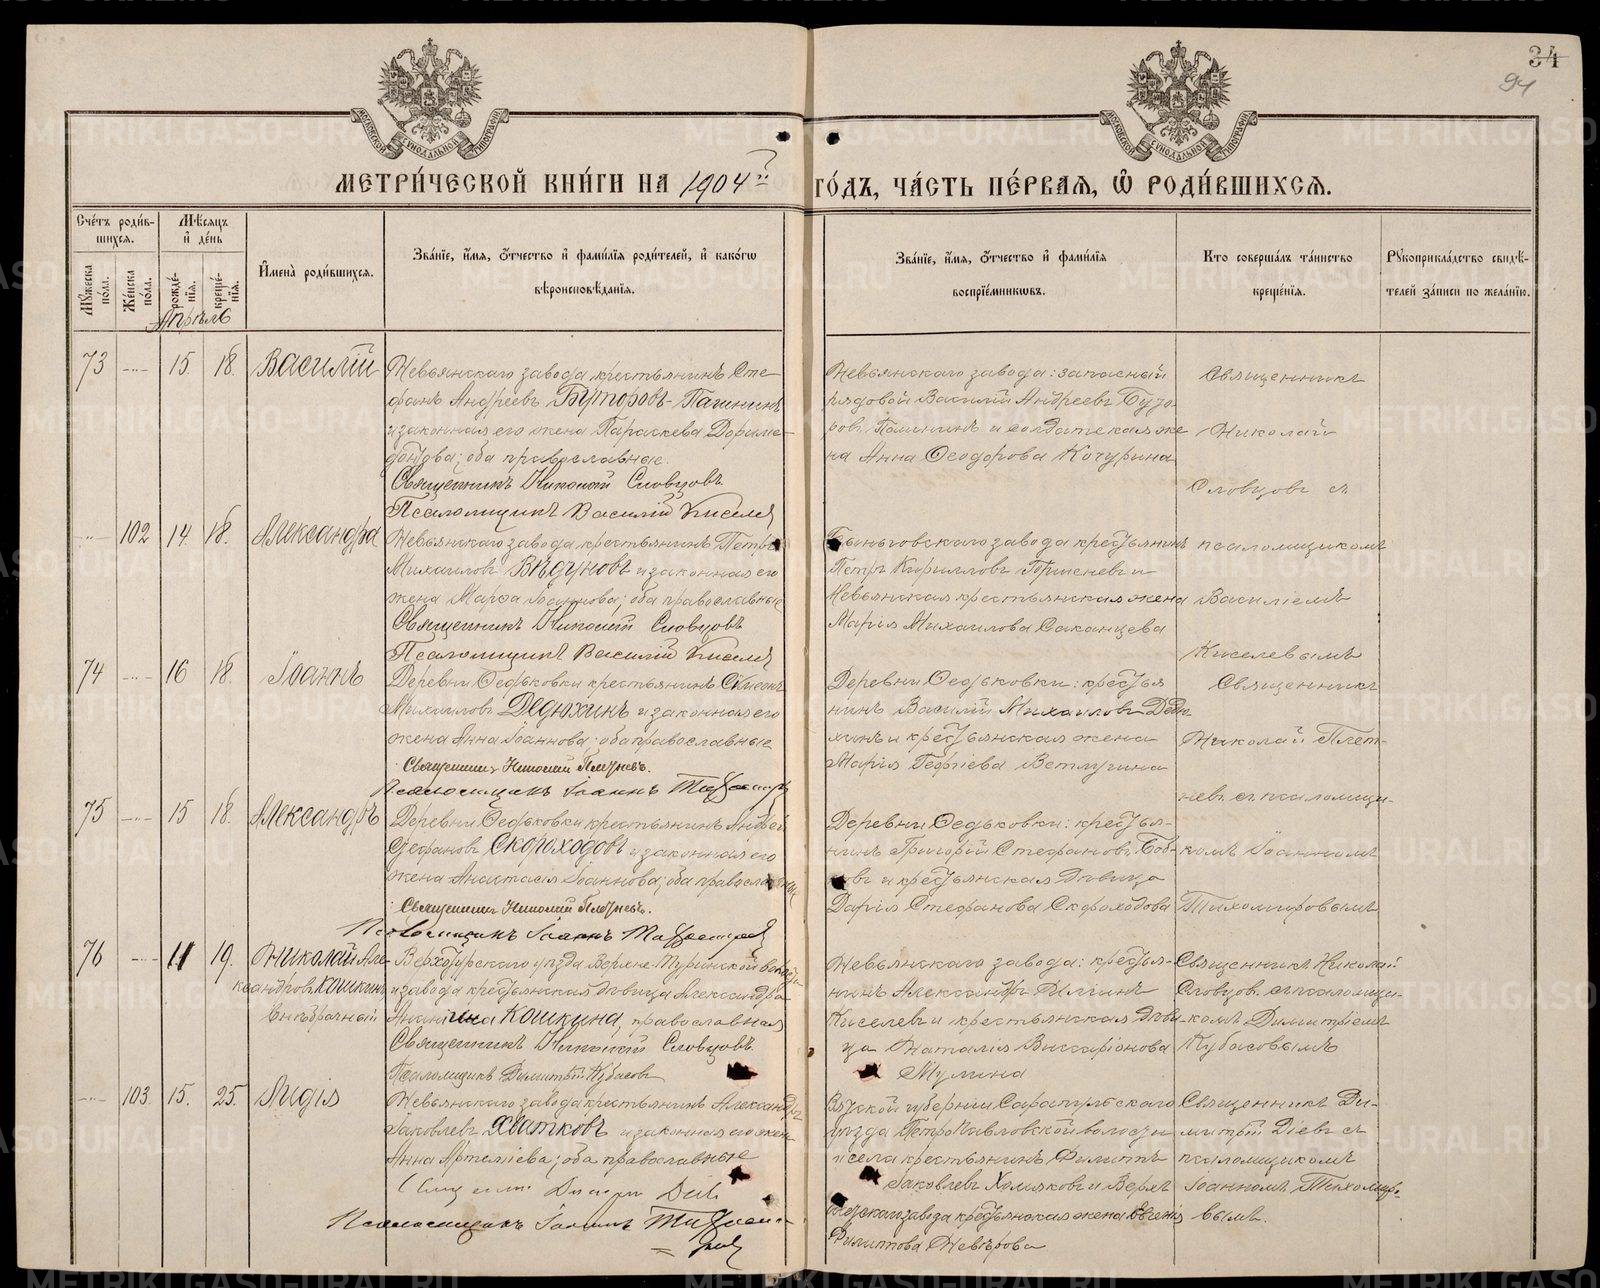 34
94
МЕТРИ́ЧЕСКОЙ КНИ́ГИ НА 1904й ГО́ДЪ, ЧА́СТЬ ПЕ́РВАЯ, Ѽ РОДИ́ВШИХСЯ.
Счетъ роди́вшихся.
Му́жеска по́ла.
Же́нска по́ла.
Мѣ́сяцъ и де́нь
рожде́нія.
креще́нія.
И́мена роди́вшихся.
Зва́ніе, и́мя, о́тчество и фами́лія роди́телей, и како́гѡ
вѣроисповѣ́данія.
Зва́ніе, и́мя, о́тчество и фами́лія
воспріе́мникѡвъ.
Кто соверша́лъ та́инство
креще́нія.
Рукоприкла́дство свидѣ́-
телей за́писи по жела́нію.
Апрѣль
73 15 18. Василій
Невьянскаго завода крестьянинъ Сте-
фанъ Андреевъ Буторовъ-Пагининъ
и законная его жена Параскева
оба православные.
Священникъ Николай Словцовъ
Псаломщикъ Василій Киселев
Невьянскаго завода: запасный
рядовой Василій Андреевъ
и солдатская же-
на Анна Феодорова Кочурина
Священникъ
Николай
Словцовъ съ
102 14. 18. Александра
Невьянскаго завода крестьянинъ Петръ
Михаиловъ Вѣдуновъ и законная его
жена Марѳа Іоаннова; оба православные
Священникъ Николай Словцовъ
Псаломщикъ Василій Киселев
Быньговскаго завода крестьянинъ
Петръ Кирилловъ и
Невьянская крестьянская жена
Марія Михаилова Саканцева
псаломщикомъ
Василіемъ
Киселевымъ
74 16 18. Іоаннъ
Деревни Федьковки крестьянинъ
Михаиловъ Дедюхинъ и законная его
жена Анна Іоаннова; оба православные
Священникъ Николай Плетневъ.
Псаломщикъ Іоаннъ
Деревни Федьковки: крестья
нинъ Василій Михаиловъ Дедю
хинъ и крестьянская жена
Марія Георгіева Ветлугина
Священникъ
Николай Плет-
невъ съ псаломщи-
75 15 18. Александръ
Деревни Федьковки крестьянинъ Андрей
Стефановъ Скороходовъ и законная его
жена Анастасія Іоаннова; оба православные
Священникъ Николай Плетневъ.
Псаломщикъ Іоаннъ
Деревни Федьковки: крестья-
нинъ Григорій Стефановъ Боб-
ровъ и крестьянская дѣвица
Дарія Стефанова Скороходова
комъ Іоанномъ
Тихомировымъ
76 11 19. Николай Але-
ксандровъ Кошкинъ
Внѣбрачный
Верхотурскаго уѣзда Верхне-Туринской
и завода крестьянская дѣвица Александра
Кошкина, православная
Священникъ Николай Словцовъ
Псаломщикъ Димитрій Кубасовъ
Невьянскаго завода: крестья-
нинъ Александръ
Киселевъ и крестьянская дѣви-
ца Наталія Виссаріонова
Мулина
Священникъ Николай
Словцовъ съ псаломщи-
комъ Димитріемъ
Кубасовымъ
103. 15. 25. Лидія
Невьянскаго завода крестьянинъ Александръ
Іаковлевъ Хватковъ и законная его жена
Анна Артеміева; оба православные
Псаломщикъ Іоаннъ
Вятской губерніи Сарапульскаго
уѣзда Петропавловской волости
и села крестьянинъ Филиппъ
Іаковлевъ Хомяковъ и Верх-
завода крестьянская жена Евгенія
Филиппова
Священникъ Ди-
митрій Діевъ съ
псаломщикомъ
Іоанномъ Тихомиро-
вымъ.
METRIKI.GASO-URAL.RU